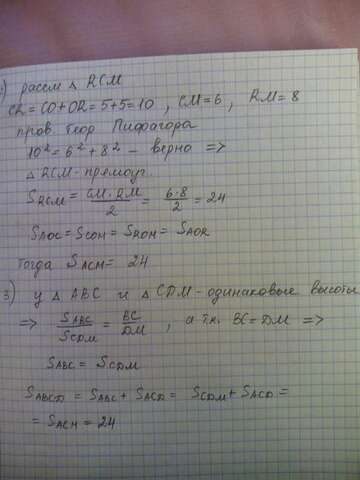 ) рассм △ RCM
CR = CO + OR = 5+5 = 10 , CM = 6 , RM = 8
пров. теор Пифагора
10² = 6² + 8² - верно =>
△ RCM - прямоуг.
S RCM = CM · RM / 2 = 6·8 / 2 = 24
S AOC = S COM = S ROM = S AOR
Тогда S ACM = 24
3) у △ ABC и △ CDM - одинаковые высоты
=> S ABC / S CDM = BC / DM , а т.к. BC = DM =>
S ABC = S CDM
S ABCD = S ABC + S ACD = S CDM + S ACD =
= S ACM = 24